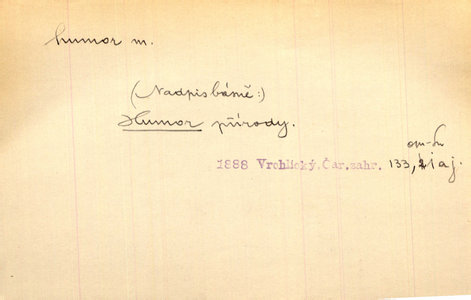 humor m.
(Nadpis básně:)
Humor přírody.
1888 Vrchlický. Čar. zahr. 133, i aj.